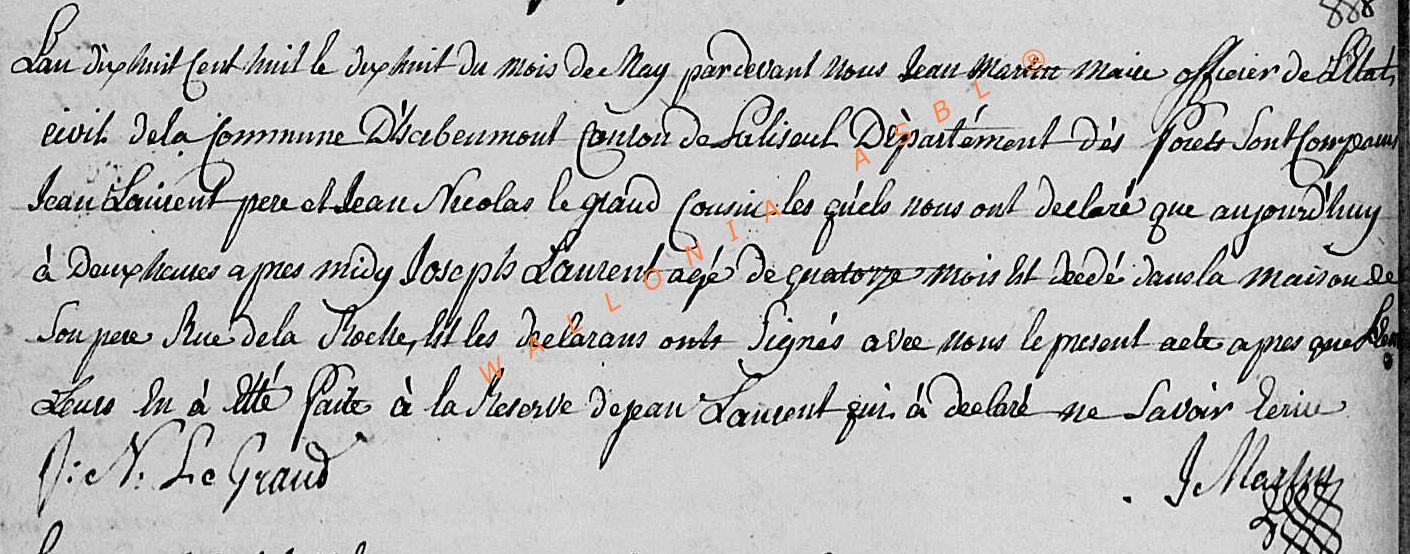 888
L'an dix huit Cent huit le dix huit du mois de May pardevant nous Jean Martin maire officier de L'Etat
civil de la Commune D' Canton de Paliseul Département dés forets Sont Comparus
Jean Laurent pere et Jean Nicolas le grand Cousin les quéls nous ont declaré que aujourd'huy
à Deux heures apres midy Joseph Laurent agé de quatorze mois Est decedé dans la maison de
Son pere Rue dela Roche, Et les declarans onts Signés avec nous le present acte apres que
Leurs En à Etté faite à la Reserve de jean Laurent qui à declaré ne Savoir Ecrire
J: N: Le Grand
J Martin
WALLONIA ASBL ®